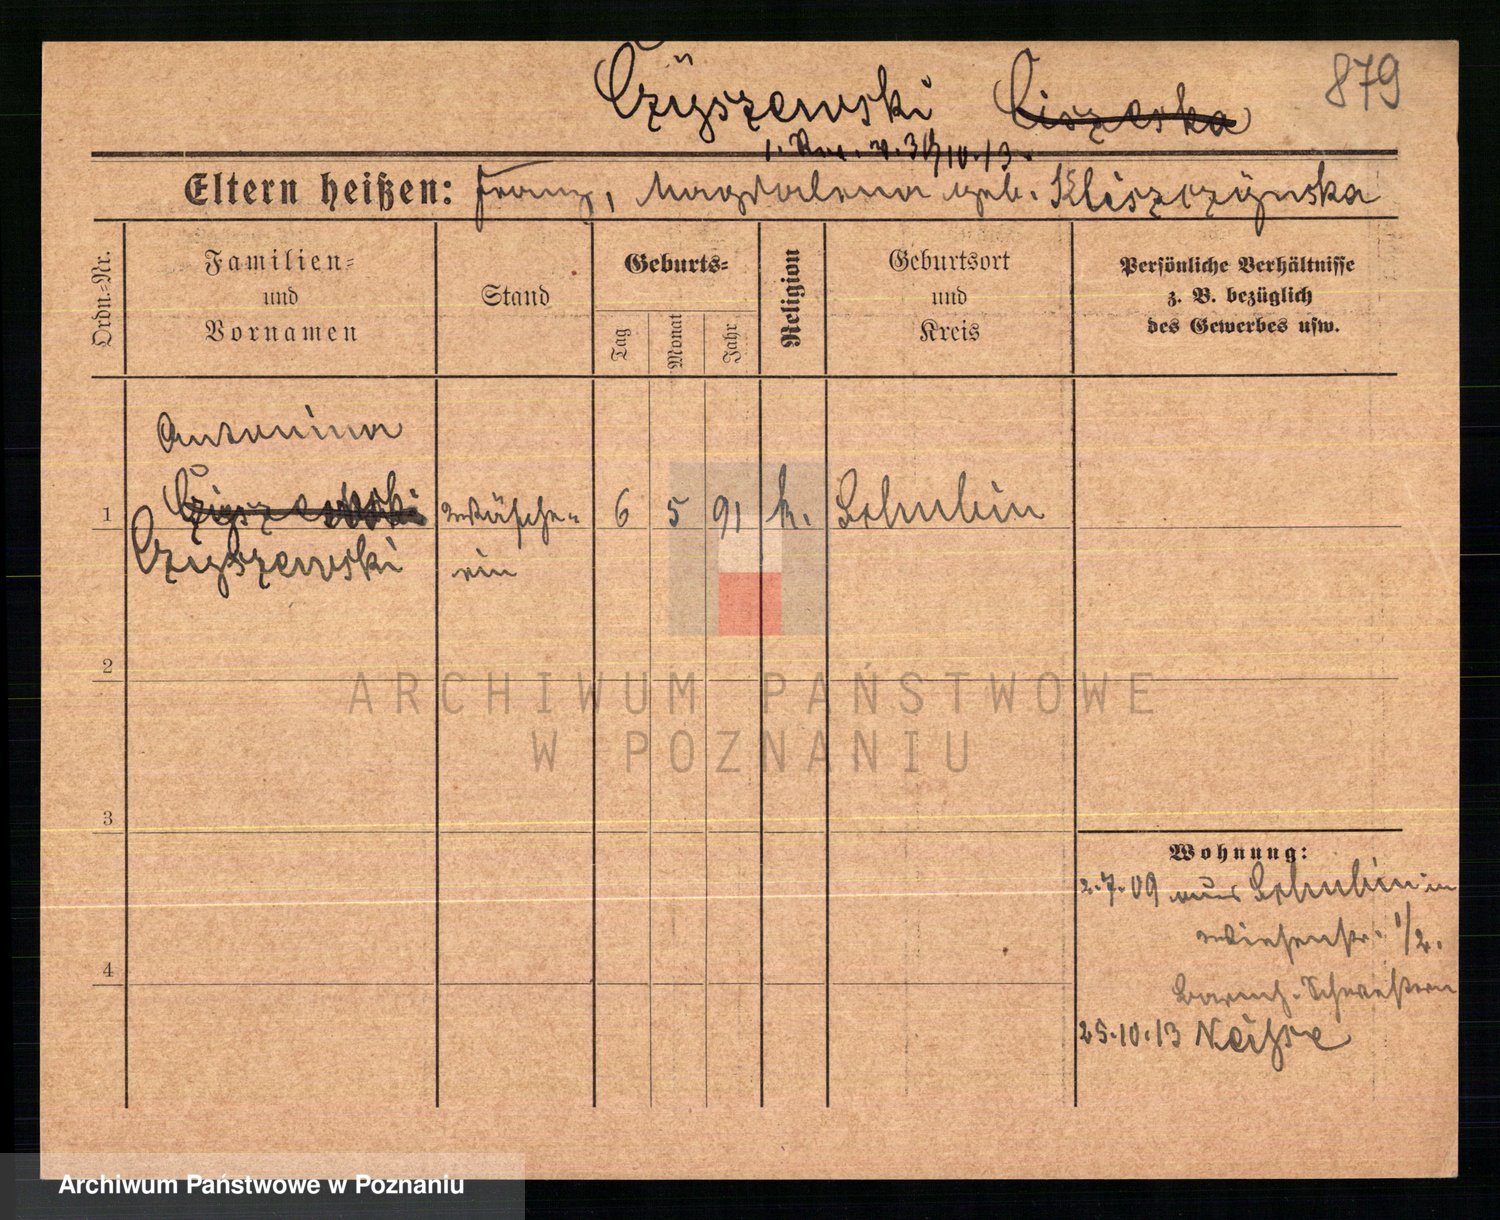 Czÿszewski Ciszeska 879
1. Rev. v. 31/10.13.
Eltern heißen: Franz, Magdalena geb. Kliszczÿnska
Ordn.-Nr.
Familien-
und
Vornamen
Stand
Geburts-
Tag
Monat
Jahr
Religion
Geburtsort
und
Kreis
Persönliche Verhältnisse
z. B. bezüglich
des Gewerbes usw.
Antonina
1 Wäsche- 6 5 91 k. Schubin
Czyszewski rin
2
3
4
Wohnung:
2.7.09 aus Schubin in
Wiesenstr. 1/2.
Barmh. Schwestern
25.10.13 Neisse
ARCHIWUM PAŃSTWOWE
W POZNANIU
Archiwum Państwowe w Poznaniu